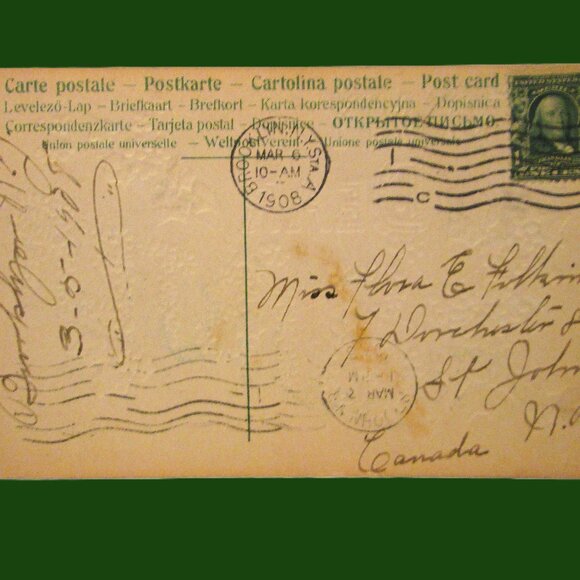 Carte postale – Postkarte – Cartolina postale – Post card
Levelező-Lap – Briefkaart – Brefkort – Karta korespondencyjna – Dopisnica
Correspondenzkarte – Tarjeta postal – Dopisnice – ОТКРЫТОЕ ПИСЬМО
Union postale universelle – Weltpostverein – Unione postale universale
BROOKLYN, N.Y. STA. A
MAR 6
10-AM
1908
C
Miss Flora E
7 Dorchester
St John
N.
Canada
MAR
3-0-